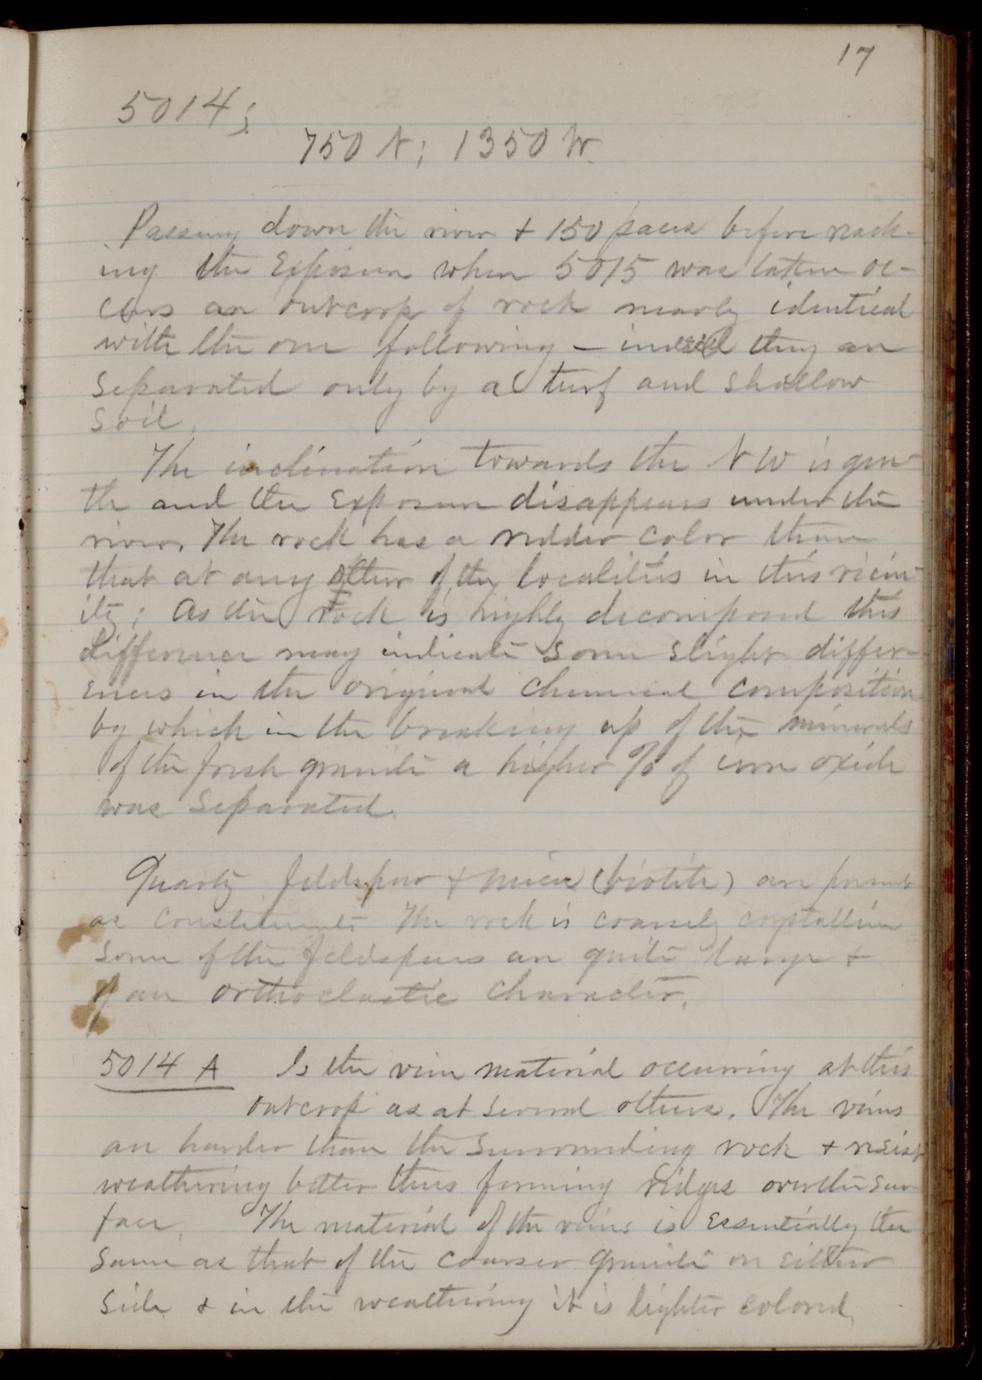 17
5014;
750 N; 1350 W.
Passing down the river & 150 paces before reach-
ing the Exposure where 5015 was taken oc-
curs an outcrop of rock nearly identical
with the one following - indeed they are
separated only by a turf and shallow
soil.
The inclination towards the NW is gen-
tle and the Exposure disappears under the
river. The rock has a redder color than
that at any other of the localities in this vicin-
ity; as the rock is highly decomposed this
difference may indicate some slight differ-
ences in the original chemical composition
by which in the breaking up of the minerals
of the fresh granite a higher % of iron oxide
was separated.
Quartz feldspar & mica (biotite) are present
as constituents The rock is coarsely crystalline
some of the feldspars are quite large &
of an orthoclastic character.
5014 A Is the vein material occurring at this
outcrop as at several others. The veins
are harder than the surrounding rock & resist
weathering better thus forming ridges over the sur-
face. The material of the veins is essentially the
same as that of the coarser granite on either
side & in the weathering it is lighter colored